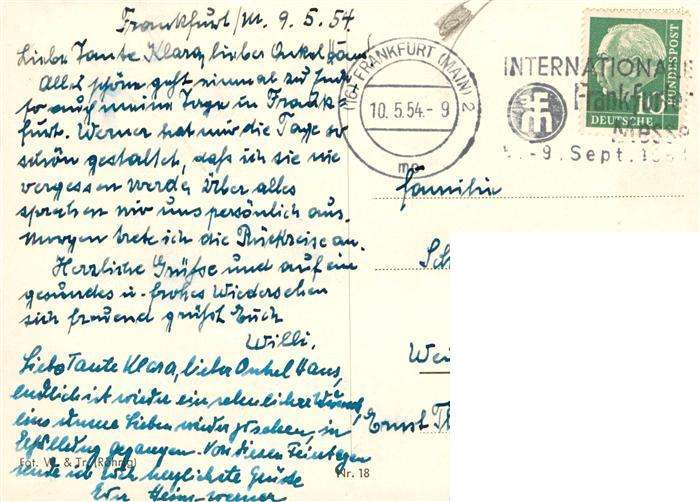 Frankfurt/M. 9.5.54
Liebe Tante Klara, lieber Onkel Hans!
Alles schöne geht einmal zu Ende
so auch meine Tage in Frank-
furt. Werner hat mir die Tage so
schön gestaltet, daß ich sie nie
vergessen werde. Über alles
sprechen wir uns persönlich aus.
morgen trete ich die Rückreise an.
Herzliche Grüße und auf ein
gesundes u. frohes Wiedersehen
sich freuend grüßt Euch
Willi.
Liebe Tante Klara, lieber Onkel Hans,
endlich ist wieder ein sehnlicher Wunsch,
uns unsere Lieben wieder zu sehen, in
Erfüllung gegangen. Von diesen
sende ich Euch herzlichste Grüße
Euer Heinz-Werner
Fot. W. & Tr. (Röhrig)
Nr. 18
(16) FRANKFURT (MAIN) 2
10.5.54.-9
mo
INTERNATIONALE
Frankfurter
MESSE
-9. Sept. 195
DEUTSCHE
BUNDESPOST
10
Familie
Sch
Wei
Ernst Th